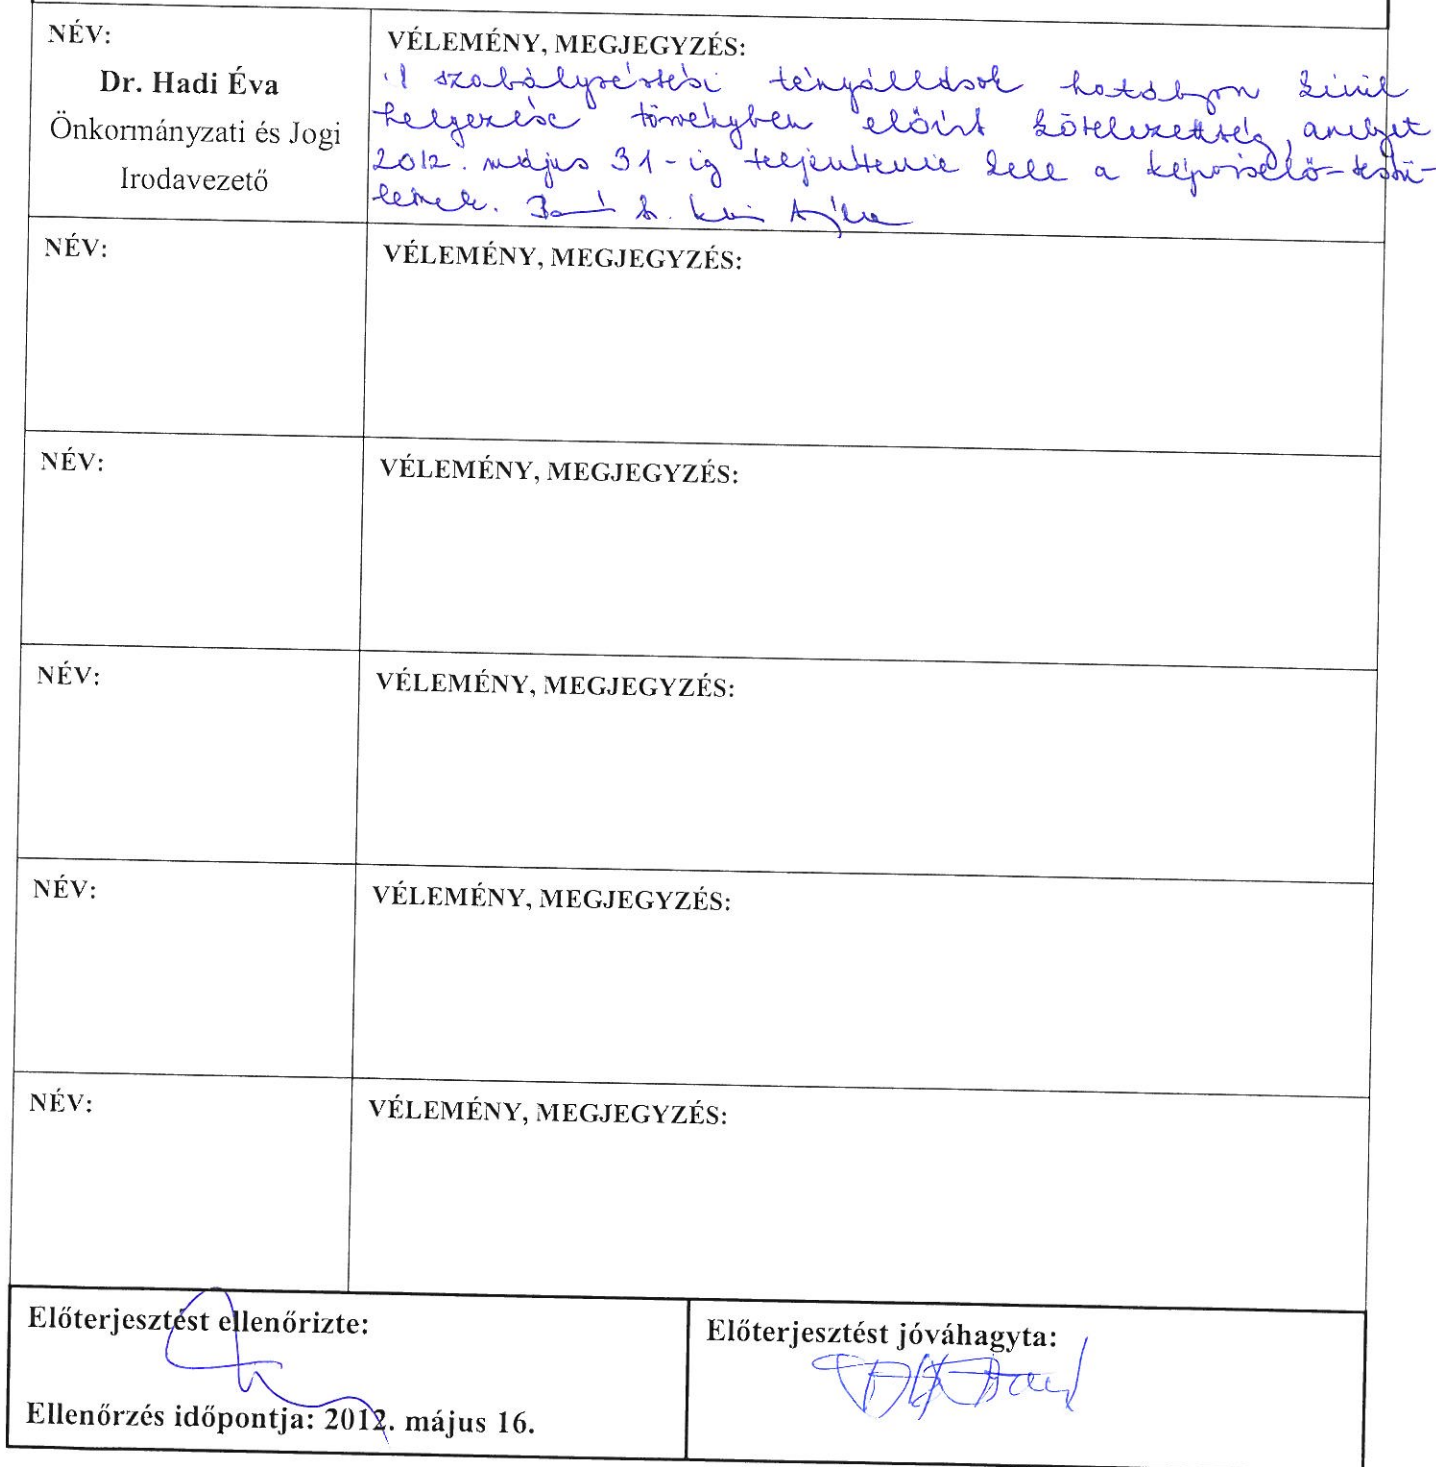 NÉV:
Dr. Hadi Éva
Önkormányzati és Jogi
Irodavezető
VÉLEMÉNY, MEGJEGYZÉS:
A szabálysértési tényállások hatályon kívül
helyezése törvényben előírt kötelezettség, amelyet
2012. május 31-ig teljesítenie kell a képviselő-testü-
letnek.
NÉV:
VÉLEMÉNY, MEGJEGYZÉS:
NÉV:
VÉLEMÉNY, MEGJEGYZÉS:
NÉV:
VÉLEMÉNY, MEGJEGYZÉS:
NÉV:
VÉLEMÉNY, MEGJEGYZÉS:
NÉV:
VÉLEMÉNY, MEGJEGYZÉS:
Előterjesztést ellenőrizte:
Ellenőrzés időpontja: 2012. május 16.
Előterjesztést jóváhagyta: